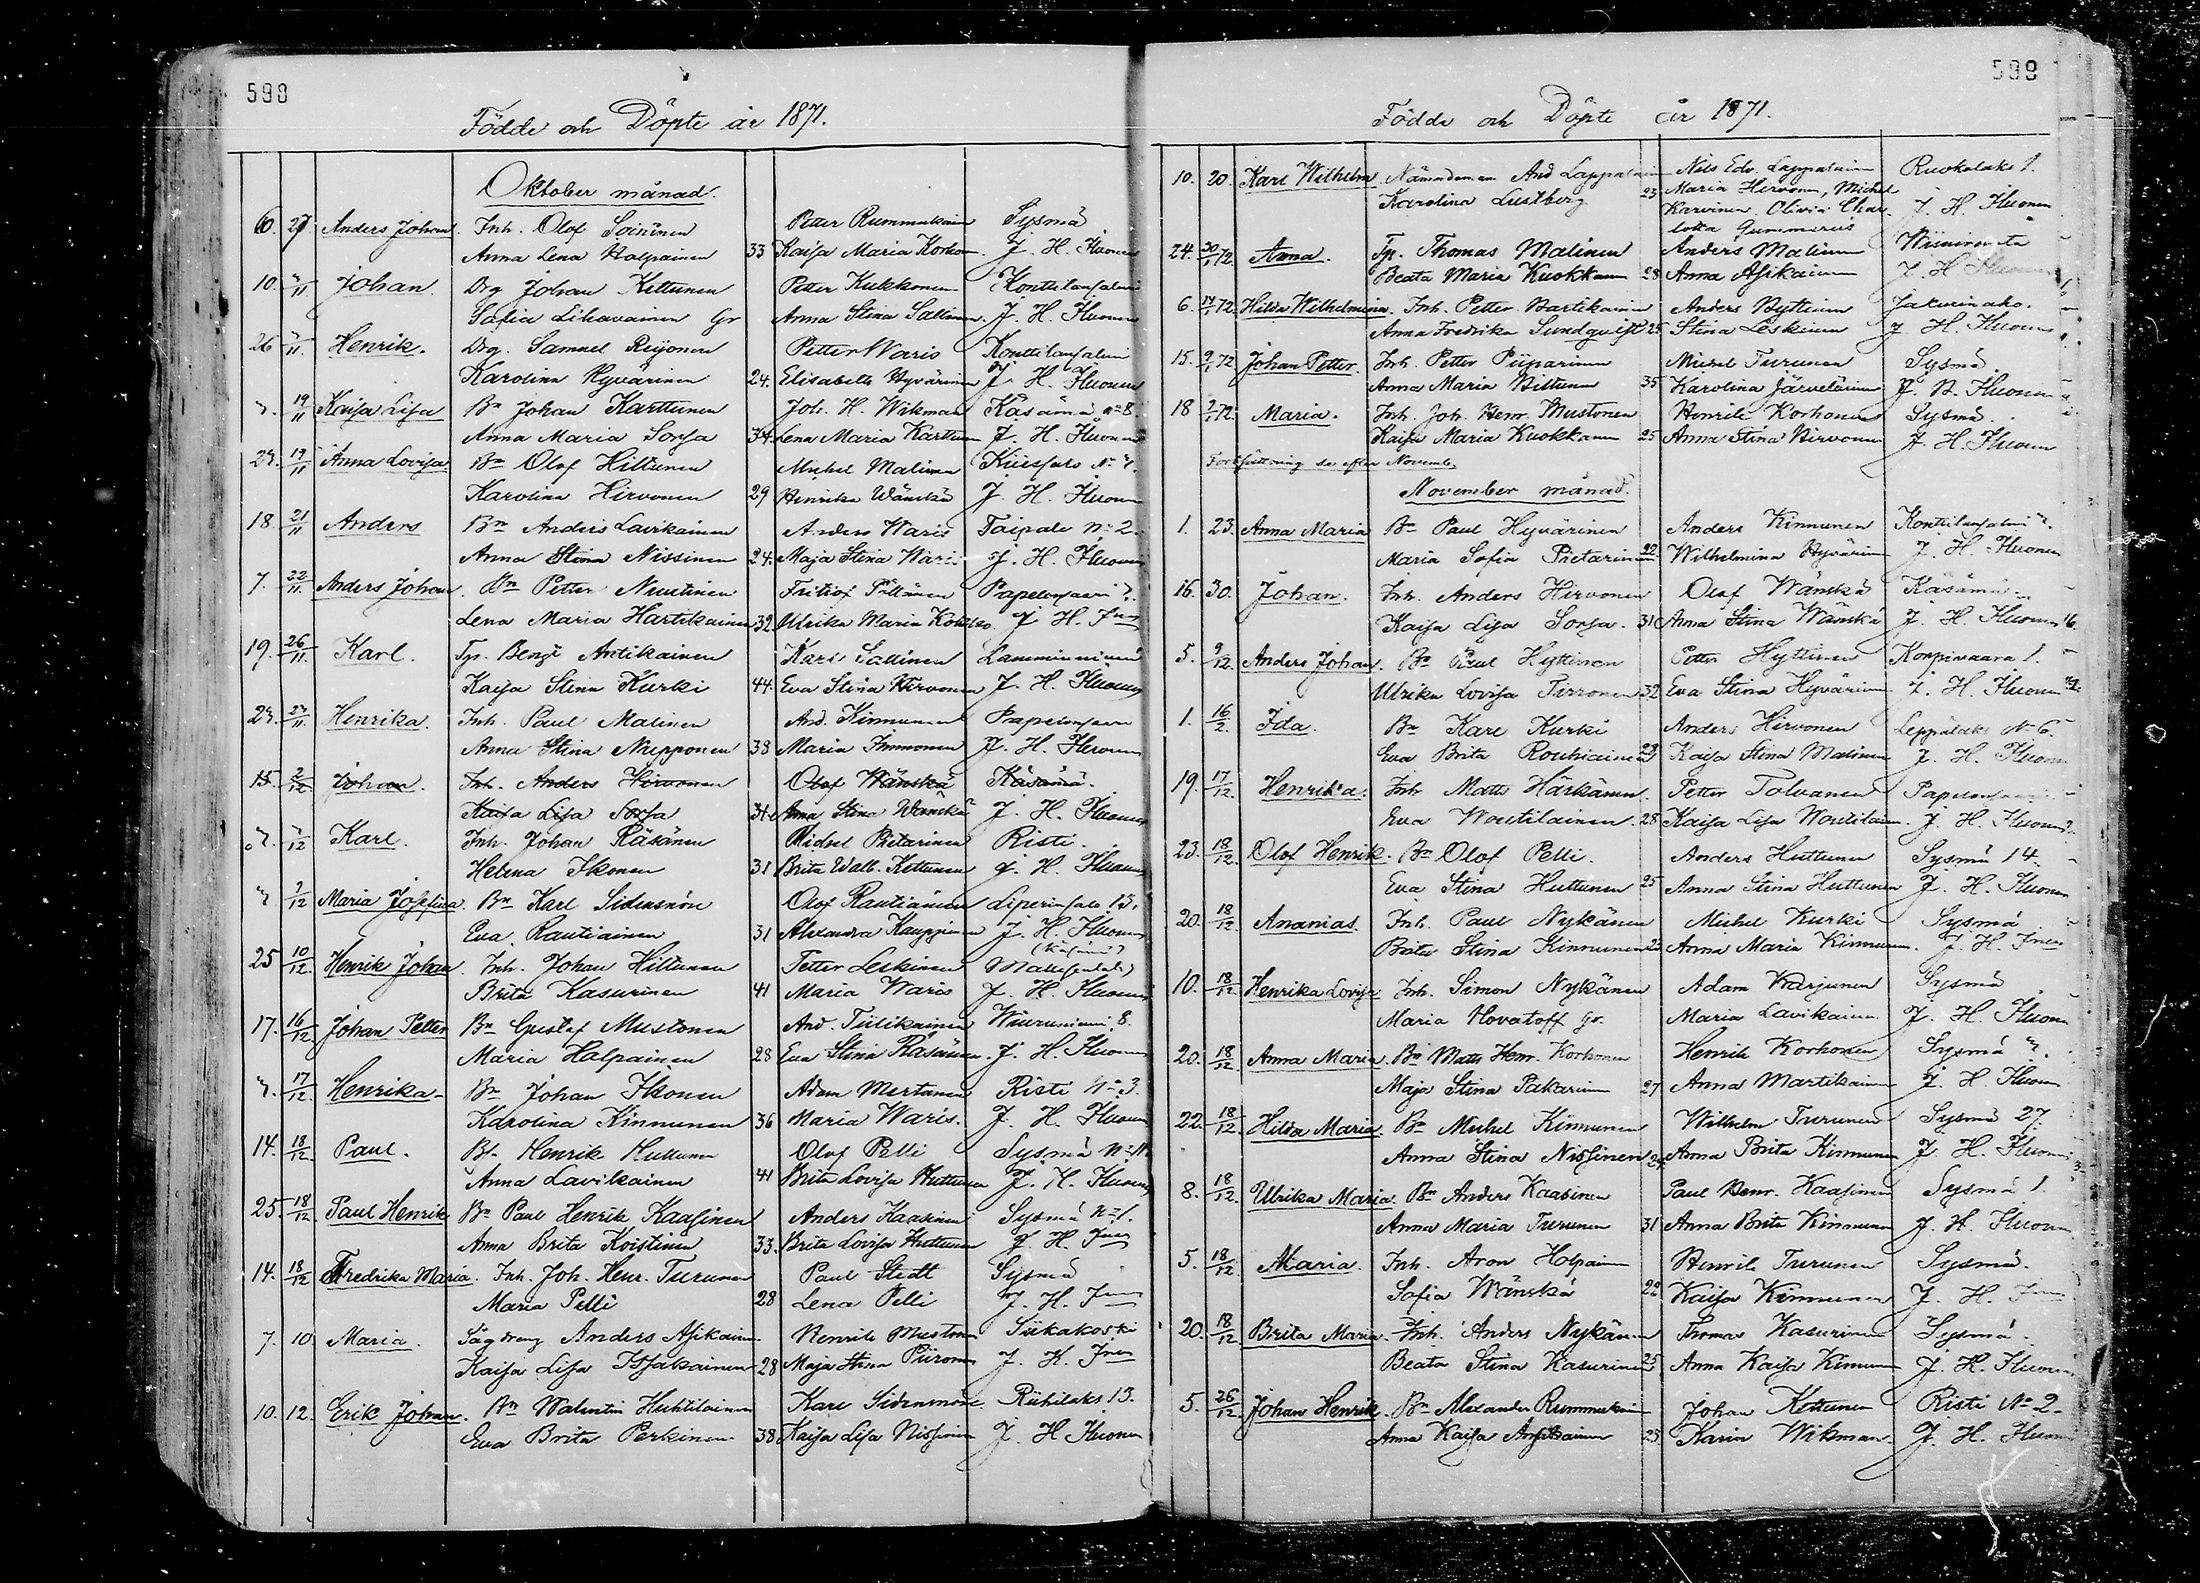 590
Födde och Döpte år 1871.
Oktober månad.
6. 27 Anders Johan Inh. Olof Soininen Petter Rummukain Sysmä
Anna Lena Halpainen 33 Kaisa Maria Korhon. J. H. Fluonen
10. 7/11 Johan. Drg Johan Kettunen Peter Kukkonen Konttilansalmi
Sofia Lihavainen Gr Anna Stina Sallinen. J. H. Fluonen
26 7/11. Henrik. Drg. Samuel Reijonen Petter Waris Konttilansalmi
Karolina Hyvärinen 24. Elisabeth Hyvärinen J. H. Fluonen
7. 19/11 Kaisa Lisa Bn Johan Karttunen Joh. H. Wikman Käsämä No 8.
Anna Maria Sorsa 34. Lena Maria Karttunen J. H. Fluonen
27. 19/11 Anna Lovisa Bn Olof Hiltunen Michel Malinen No 7.
Karolina Hirvonen 29 Henrika Wänskä J. H. Fluonen
18. 21/11 Anders Bn Anders Lavikainen Anders Waris Taipale No 2.
Anna Stina Nissinen 24. Maja Stina Waris J. H. Fluonen
7. 22/11. Anders Johan. Bn Petter Nuutinen Fritiof Pöllänen Papelonsaari 7.
Lena Maria Hartikainen 32 Ulrika Maria J. H. Fnen
19. 26/11. Karl. Tp. Bengt Antikainen Karl Sallinen Lamminniemi
Kaisa Stina Kurki 44. Eva Stina Hirvonen J. H. Fluonen
27. 27/11. Henrika. Inh. Paul Malinen And. Kinnunen Papelonsaari
Anna Stina Nupponen 38 Maria Immonen J. H. Fluonen
15. 2/12 Johan. Inh. Anders Hirvonen Olof Wänskä Käsämä.
Kaisa Lisa Sorsa 31. Anna Stina Wänskä J. H. Fluonen
7. 7/12 Karl. Inh. Johan Räsänen Michel Pietarinen Risti.
Helena Ikonen 31 Brita Walb. Kettunen J. H. Fluonen
7 9/12 Maria Josefina. Bn Karl Sidensnöre Olof Rautiainen Liperinsalo 13.
Eva Rautiainen 31 Alexandra Kauppinen J. H. Fluonen
(Käsämä)
25 10/12. Henrik Johan. Inh. Johan Hiltunen Petter Leskinen
Brita Kasurinen 41 Maria Waris J. H. Fluonen
17. 16/12. Johan Petter Bn Gustaf Mustonen And. Tiilikainen Wiiniemi 8.
Maria Halpainen 28 Eva Stina Räsänen. J. H. Fluonen
7. 17/12. Henrika. Bn Johan Ikonen Adam Mertanen Risti No 3.
Karolina Kinnunen 36 Maria Waris. J. H. Fluonen
14. 18/12. Paul. Bn Henrik Huttunen Olof Pelli Sysmä No 11.
Anna Lavikainen 41 Brita Lovisa Huttunen J. H. Fluonen
25. 18/12. Paul Henrik Bn Paul Henrik Kaasinen Anders Kaasinen Sysmä No 1.
Anna Brita Koistinen 33. Brita Lovisa Huttunen J. H. Fnen
14. 18/12 Fredrika Maria. Inh. Joh. Henr. Turunen Paul Stedt Sysmä
Maria Pelli 28 Lena Pelli J. H. Fnen
7. 10 Maria. Sågdreng Anders Asikainen Henrik Mustonen Siikakoski
Kaisa Lisa 28 Maja Stina Piironen J. H. Fnen
10. 12. Erik Johan. Bn Walentin Huhtilainen Karl Sidensnöre Riihilaks 13.
Eva Brita Perkinen 38 Kaisa Lisa Nissinen J. H. Fluonen
599
Födde och Döpte år 1871.
10. 20. Karl Wilhelm Nämndeman And Lappalain Nils Edv. Lappalainen Ruokolaks 1.
Karolina Lustberg 23 Maria Hirvonen, Michel
Karvinen Olivia Char- J. H. Fluonen
lotta Gummerus
24. 30/1 72. Anna. Tp. Thomas Malinen Anders Malinen
Beata Maria Kuokkanen 28 Anna Asikainen J. H. Fluonen
6. 14/1 72. Hilda Wilhelmina. Inh. Petter Martikainen Anders Hyttinen Jakurinaho.
Anna Fredrika Sundqvist 25 Stina Leskinen J. H. Fluonen
15. 9/1 72 Johan Petter. Inh. Petter Piiparinen Michel Turunen Sysmä
Anna Maria Hiltunen 35 Karolina Järveläinen J. H. Fluonen
18 9/1 72. Maria. Inh. Joh. Henr. Mustonen Henrik Korhonen Sysmä
Kaisa Maria Kuokkanen 25 Anna Stina Hirvonen J. H. Fluonen
Fortsättning se efter Novemb.
November månad.
1. 23. Anna Maria Bn Paul Hyvärinen Anders Kinnunen Konttilansalmi 7.
Maria Sofia Pietarinen 22 Wilhelmina Hyvärinen J. H. Fluonen
16. 30. Johan. Inh. Anders Hirvonen Olof Wänskä Käsämä
Kaisa Lisa Sorsa. 31 Anna Stina Wänskä J. H. Fluonen
5. 9/12. Anders Johan. Bn Paul Hyttinen Petter Hyttinen Korpivaara 1.
Ulrika Lovisa Turronen 32 Eva Stina Hyvärinen J. H. Fluonen
1. 16/2. Ida. Bn Karl Kurki Anders Hirvonen Leppälaks No 6.
Eva Brita Rouhiainen 23 Kaisa Stina Malinen J. H. Fluonen
19. 17/12. Henrika. Inh Matts Härkänen. Petter Tolvanen Papelonsaari
Eva Woutilainen. 28 Kaisa Lisa Woutilain. J. H. Fluonen
23. 18/12. Olof Henrik. Bn Olof Pelli. Anders Huttunen Sysmä 14.
Eva Stina Huttunen 25 Anna Stina Huttunen J. H. Fluonen
20. 18/12. Ananias. Inh. Paul Nykänen Michel Kurki Sysmä
Brita Stina Kinnunen Anna Maria Kinnunen. J. H. Fnen
10. 18/12. Henrika Lovisa Inh. Simon Nykänen Adam Karjunen Sysmä
Maria Hovatoff gr. Maria Lavikainen J. H. Fluonen
20. 18/12. Anna Maria. Bn Matts Henr. Korhonen Henrik Korhonen Sysmä 7.
Maja Stina Pakarinen 27 Anna Martikainen J. H. Fluonen
22. 18/12. Hilda Maria. Bn Michel Kinnunen Wilhelm Turunen Sysmä 27.
Anna Stina Nissinen 24 Anna Brita Kinnunen J. H. Fluonen
8. 18/12. Ulrika Maria. Bn Anders Kaasinen Paul Henr. Kaasinen Sysmä 1.
Anna Maria Turunen 31 Anna Brita Kinnunen J. H. Fluonen
5. 18/12. Maria. Inh. Aron Holpainen Henrik Turunen Sysmä.
Sofia Wänskä 22 Kaisa Kinnunen J. H. Fnen
20. 18/12. Brita Maria. Inh. Anders Nykänen Thomas Kasurinen Sysmä.
Beata Stina Kasurinen 25 Anna Kaisa Kinnunen J. H. Fluonen
5. 26/12. Johan Henrik. Bn Alexander Rummukain Johan Kettunen Risti No 2.
Anna Kaisa 23 Karin Wikman. J. H. Fluonen